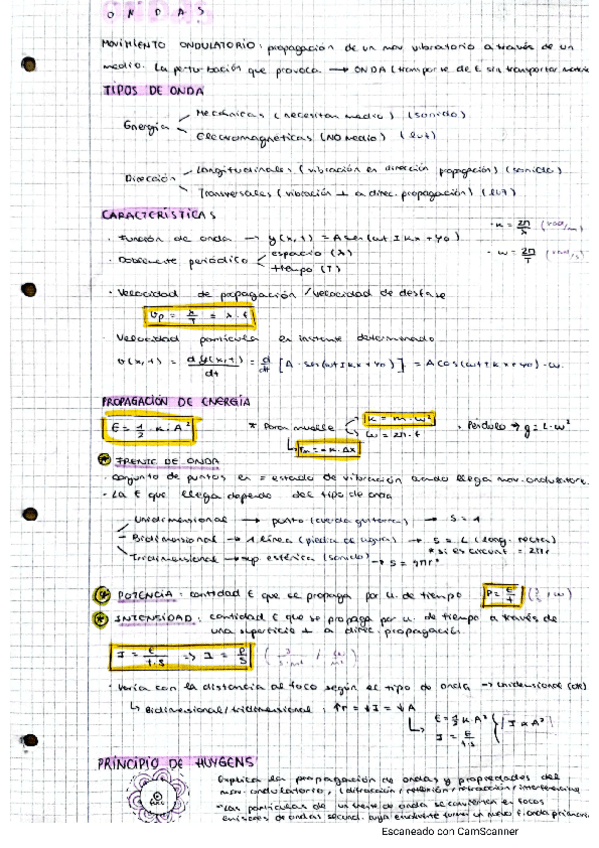 ONDAS
MOVIMIENTO ONDULATORIO: propagación de un mov vibratorio a través de un
medio. La perturbación que provoca → ONDA (transporte de E sin transportar materia
TIPOS DE ONDA
Energía
Mecánicas (necesitan medio) (sonido)
Electromagnéticas (NO medio) (luz)
Dirección
Longitudinales (vibración en dirección propagación) (sonido)
Transversales (vibración ⊥ a direc. propagación) (luz)
CARACTERÍSTICAS
· Función de onda → y(x,t) = A sen(ωt ± kx + φ0)
· k = 2π/λ (rad/m)
· Doblemente periódico
espacio (λ)
tiempo (T)
· ω = 2π/T (rad/s)
· Velocidad de propagación / velocidad de desfase
vp = λ/T = λ · f
· Velocidad partícula en instante determinado
v(x,t) = dy(x,t)/dt = d/dt [A · sen(ωt ± kx + φ0)] = A cos(ωt ± kx + φ0) · ω
PROPAGACIÓN DE ENERGÍA
E = 1/2 · k · A²
* Para muelle
k = m · ω²
ω = 2π · f
· Péndulo → g = L · ω²
Fm = -k · Δx
* FRENTE DE ONDA
· Conjunto de puntos en = estado de vibración cuando llega mov. ondulatorio.
· La E que llega depende del tipo de onda
Unidimensional → punto (cuerda guitarra) → S = 1
Bidimensional → 1 línea (piedra en agua) → S = L (long. recta)
* si es circunf = 2πr
Tridimensional → sup. esférica (sonido) → S = 4πr²
* POTENCIA: cantidad E que se propaga por u. de tiempo P = E/t (J/s / W)
* INTENSIDAD: cantidad E que se propaga por u. de tiempo a través de
una superficie ⊥ a direc. propagación.
I = E/t·S => I = P/S (J/s·m² / W/m²)
· Varía con la distancia al foco según el tipo de onda → Unidensional (OK)
↳ Bidimensional/tridimensional: ↑r = ↓I = ↓A
E = 1/2 k A²
I = E/t·S
I ∝ A²
PRINCIPIO DE HUYGENS
Explica la propagación de ondas y propiedades del
mov. ondulatorio, (difracción/reflexión/refracción/interferencia
*Las partículas de un frente de onda se convierten en focos
emisores de ondas secund. cuya envolvente forman un nuevo f. onda primario
Escaneado con CamScanner